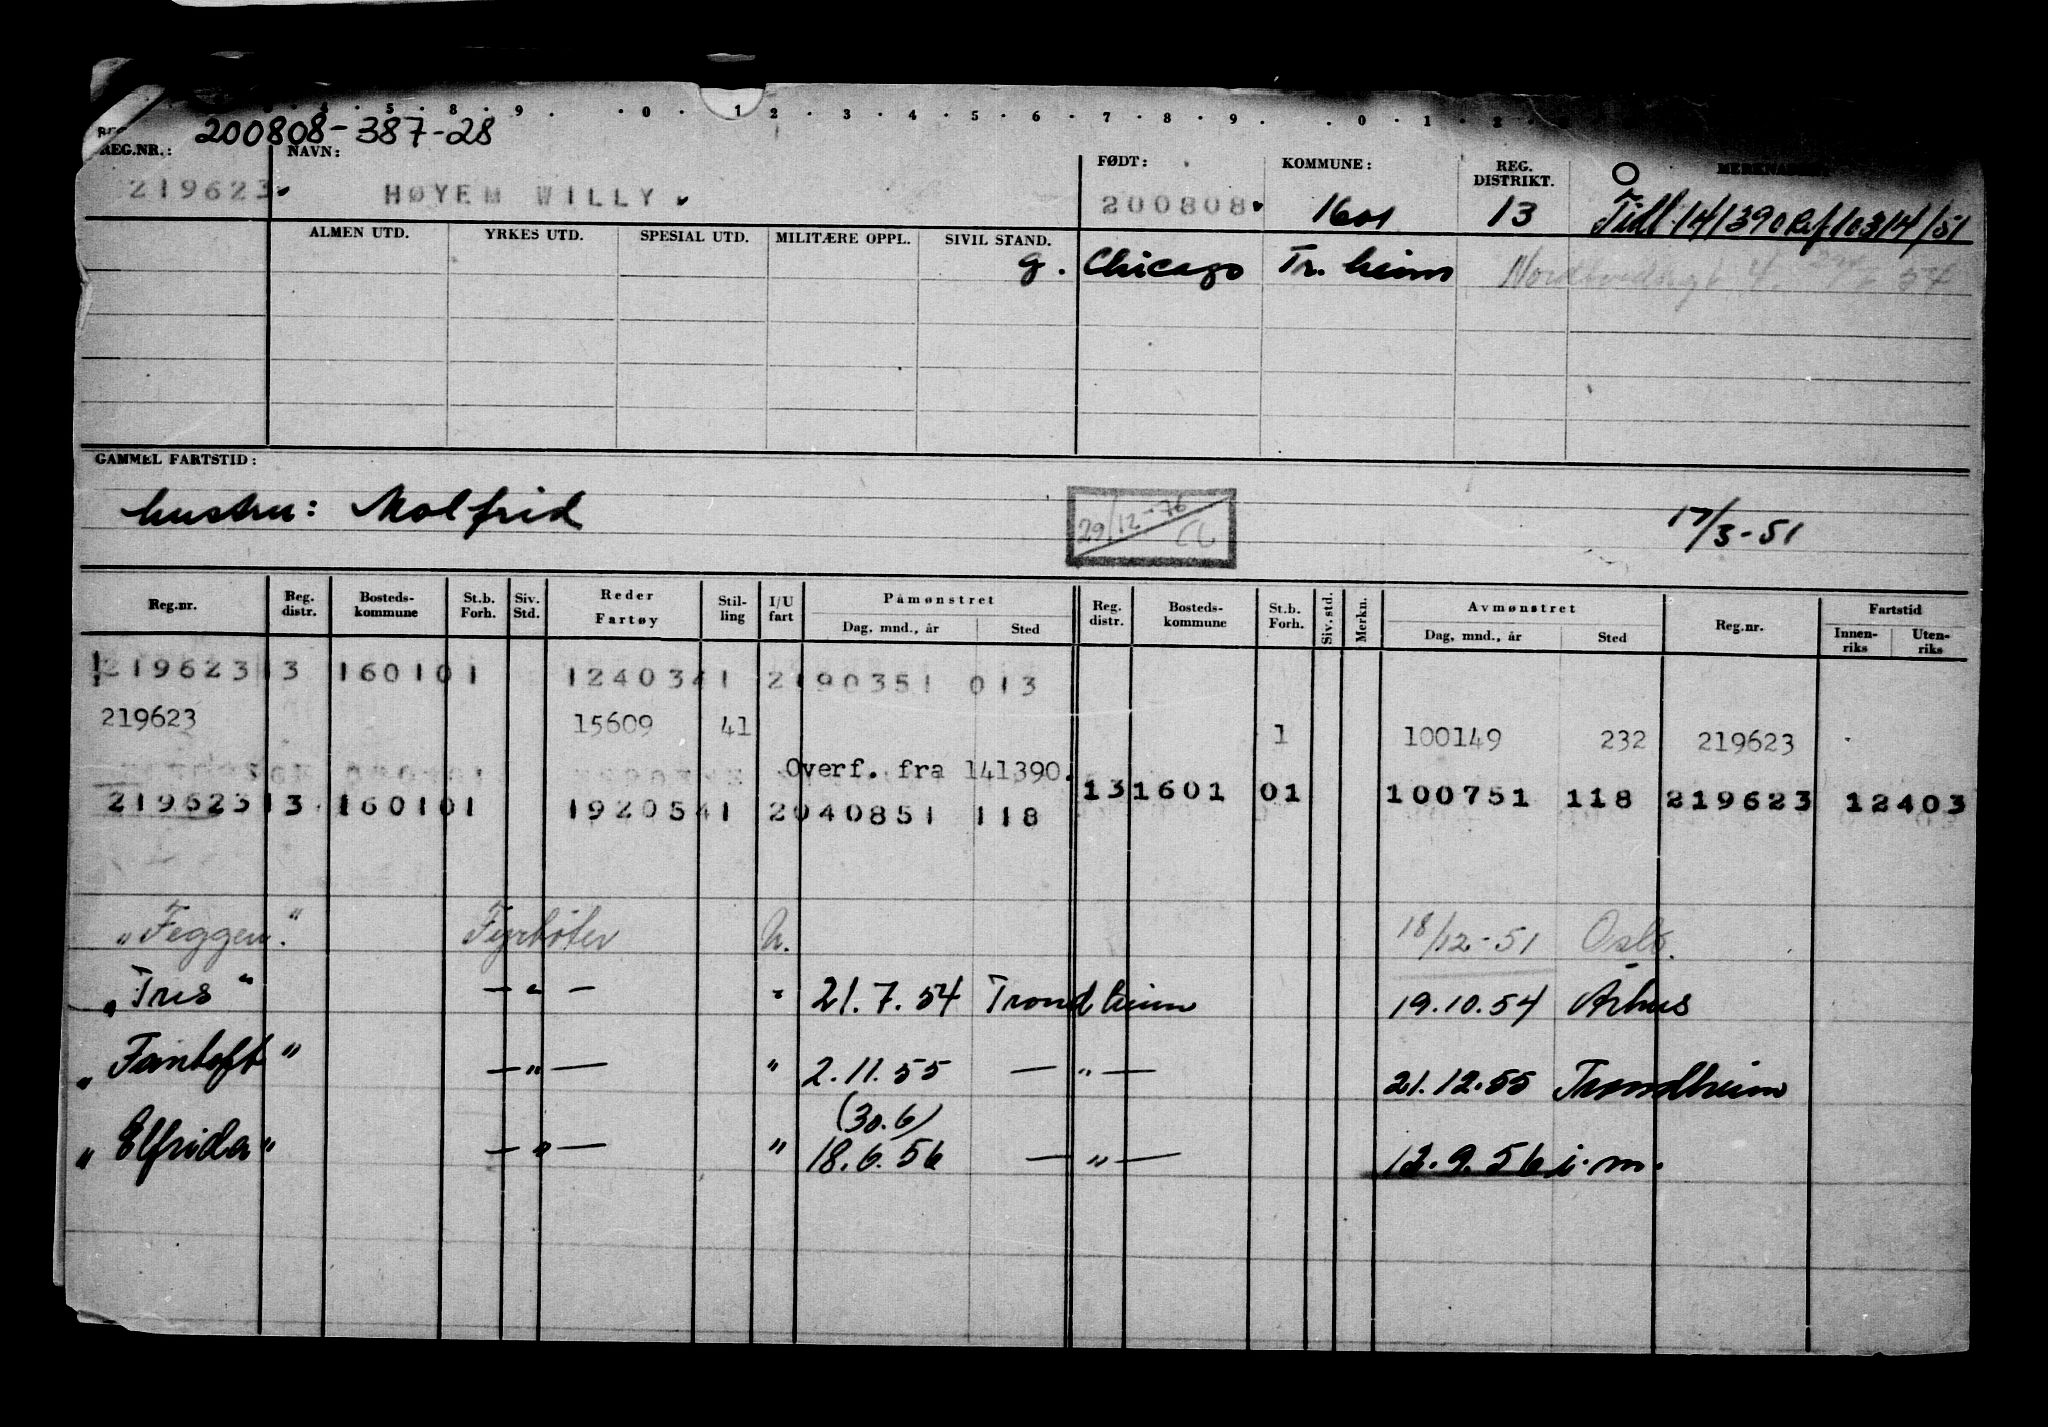 4 . 5 . 8 . 9 . . 0 . 1 2 . 3 . 4 . 5 . 6 . 7 . 8 . 9 . . 0 . 1
200808-387-28
REG.NR.: NAVN: FØDT: KOMMUNE: REG. DISTRIKT.
219623 HØYEM WILLY 200808 1601 13 Tidl. 141390 Ref 10314/51
ALMEN UTD. YRKES UTD. SPESIAL UTD. MILITÆRE OPPL. SIVIL STAND.
g. Chicago Tr.heim
GAMMEL FARTSTID:
hustru: Malfrid 29/12-76 17/3-51
Reg.nr. Reg. distr. Bosteds-kommune St.b. Forh. Siv. Std. Reder Fartøy Stil-ling I/U fart Påmønstret Reg. distr. Bosteds-kommune St.b. Forh. Siv. std. Merkn. Avmønstret Reg.nr. Fartstid
Dag, mnd., år Sted Dag, mnd., år Sted Innen-riks Uten-riks
219623 13 1601 01 12403 41 2 190351 013
219623 15609 41 1 100149 232 219623
Overf. fra 141390.
219623 13 1601 01 19205 41 2 040851 118 13 1601 01 100751 118 219623 12403
"Feggen" Fyrbøter U. 18/12-51 Oslo.
"Tres" — " — " 21.7.54 Trondheim 19.10.54 Århus
"Fantoft" — " — " 2.11.55 — " — 21.12.55 Trondheim
(30.6)
"Elfrida" — " — " 18.6.56 — " — 12.9.56 i.m.